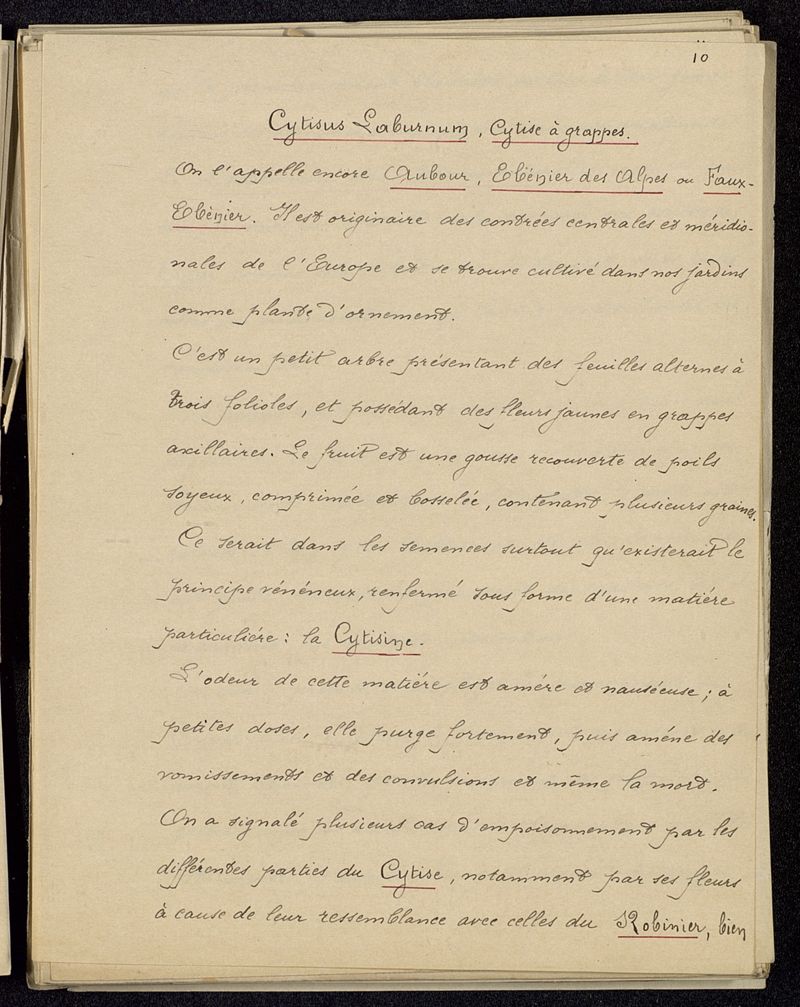 10
Cytisus Laburnum, Cytise à grappes.
On l'appelle encore Aubour, Ebénier des Alpes ou Faux-
Ebénier. Il est originaire des contrées centrales et méridio-
nales de l'Europe et se trouve cultivé dans nos jardins
comme plante d'ornement.
C'est un petit arbre présentant des feuilles alternes à
trois folioles, et possédant des fleurs jaunes en grappes
axillaires. Le fruit est une gousse recouverte de poils
soyeux, comprimée et bosselée, contenant plusieurs graines.
Ce serait dans les semences surtout qu'existerait le
principe vénéneux, renfermé sous forme d'une matiére
particuliére : la Cytisine.
L'odeur de cette matiére est amére et nauséeuse ; à
petites doses, elle purge fortement, puis améne des
vomissements et des convulsions et même la mort.
On a signalé plusieurs cas d'empoisonnement par les
différentes parties du Cytise, notamment par ses fleurs
à cause de leur ressemblance avec celles du Robinier, bien